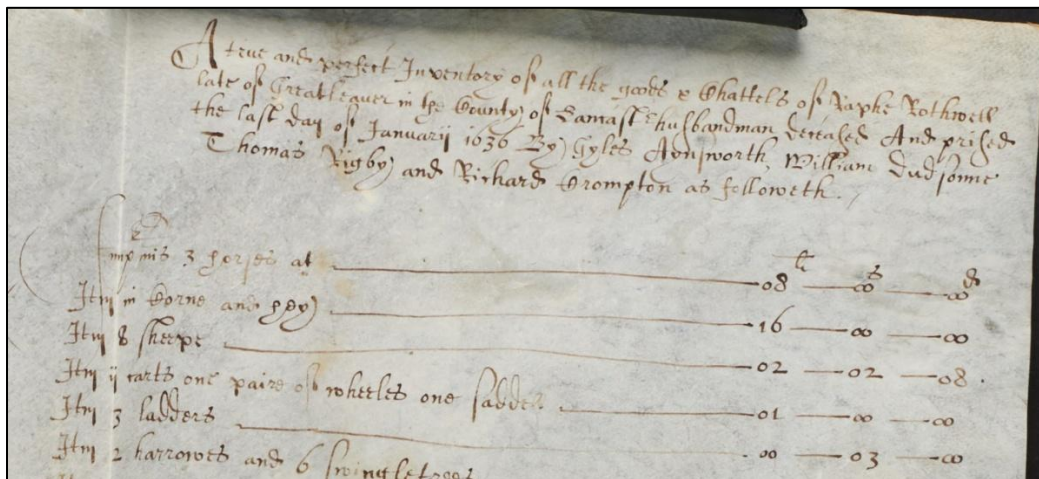 A true and perfect Inventory of all the goods & Chattels of Raphe Rothwell
late of Greatleaver in the County of Lancastr husbandman deceased And prised
the last day of Januarij 1636 By Gyles Aynsworth, William Dudsonne
Thomas Rigby and Richard Crompton as followeth.
li s d
Impmis 3 horses at 08 00 00
Itm in Corne and hey 16 00 00
Itm 8 sheepe 02 02 08
Itm ij carts one paire of wheeles one saddel 01 00 00
Itm 3 ladders 00 03 00
Itm 2 harrowes and 6 swingletrees